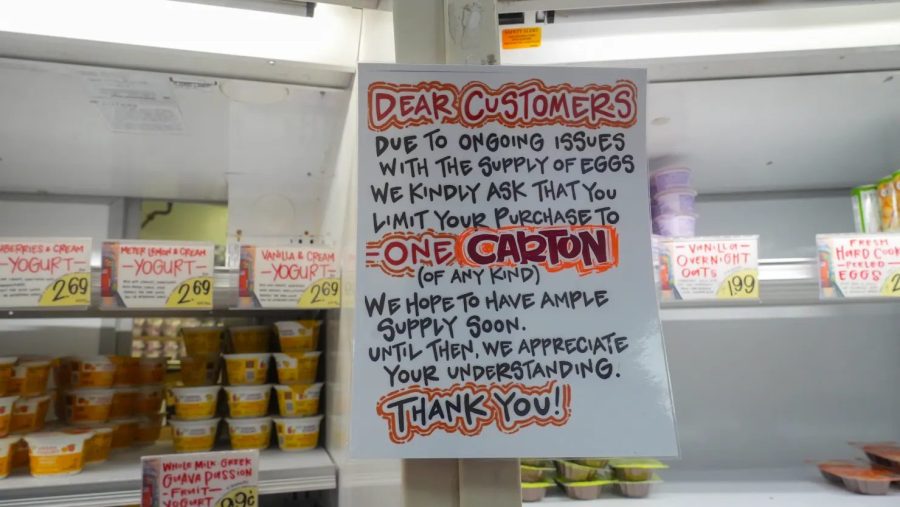 DEAR CUSTOMERS
DUE TO ONGOING ISSUES
WITH THE SUPPLY OF EGGS
WE KINDLY ASK THAT YOU
LIMIT YOUR PURCHASE TO
-ONE CARTON
(OF ANY KIND)
WE HOPE TO HAVE AMPLE
SUPPLY SOON.
UNTIL THEN, WE APPRECIATE
YOUR UNDERSTANDING.
THANK YOU!
BERRIES & CREAM
-YOGURT-
2.69
METER LEMON & CREAM
-YOGURT-
2.69
VANILLA & CREAM
-YOGURT-
2.69
WHOLE MILK GREEK
GUAVA PASSION
-FRUIT-
YOGURT
99¢
-VANILLA-
OVERNIGHT
OATS
1.99
FRESH
HARD COOK
-PEELED-
EGGS
2